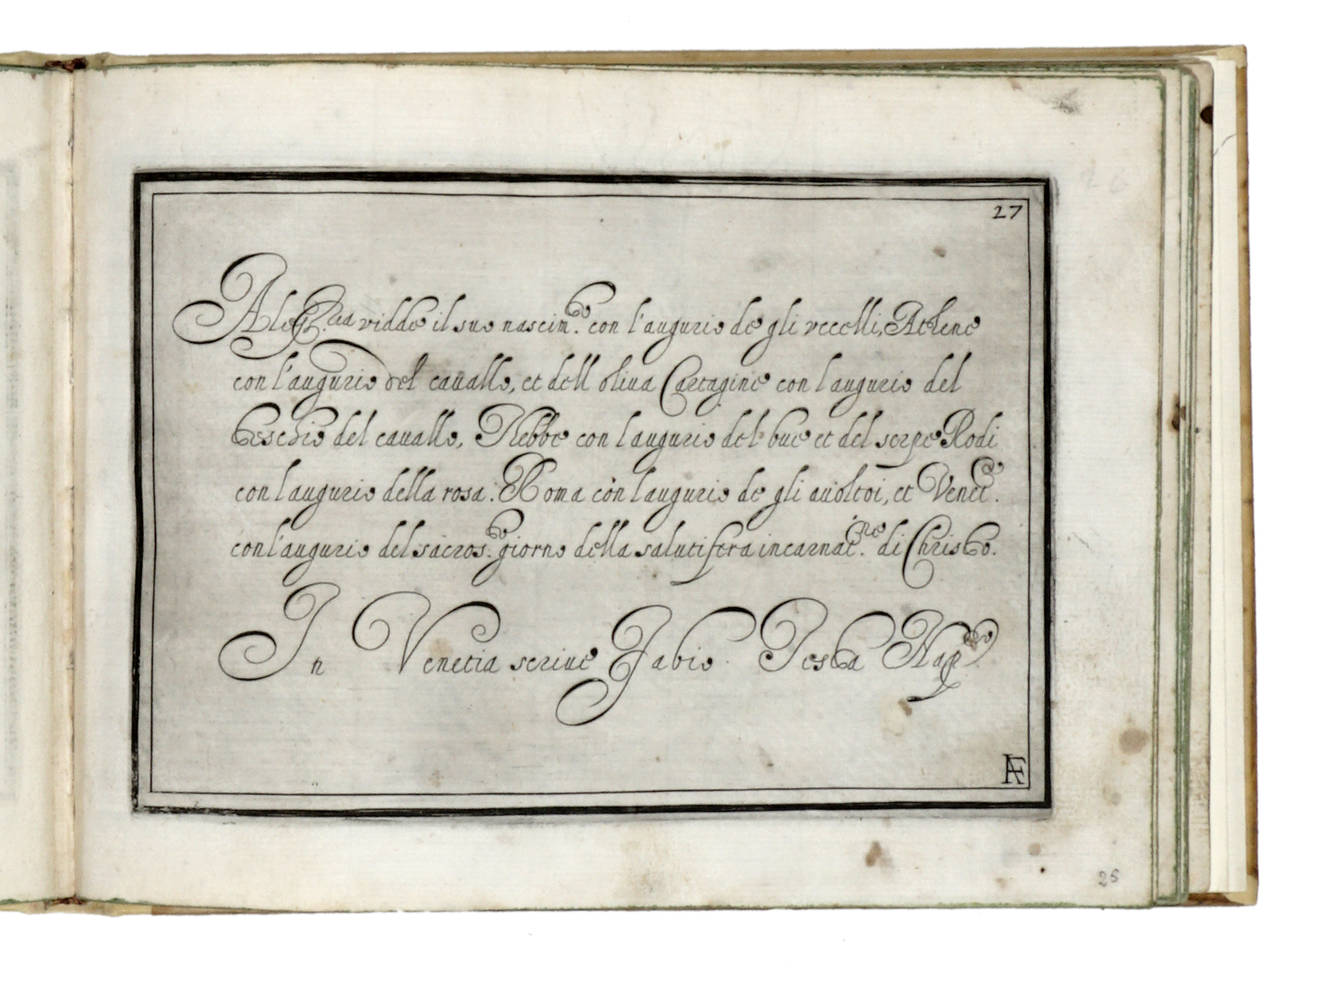 27
Aless.ria vidde il suo nascim.to con l'augurio de gli vccelli, Athene
con l'augurio del cauallo, et dell oliua Cartagine con l augurio del
teschio del cauallo, Thebbe con l augurio del bue et del serpe Rodi
con l augurio della rosa. Roma con l augurio de gli auoltoi, et Venet.a
con l'augurio del sacros.to giorno della salutifera incarnat.ne di Christo.
In Venetia scriue Fabio Testa Nap.no
AF
25